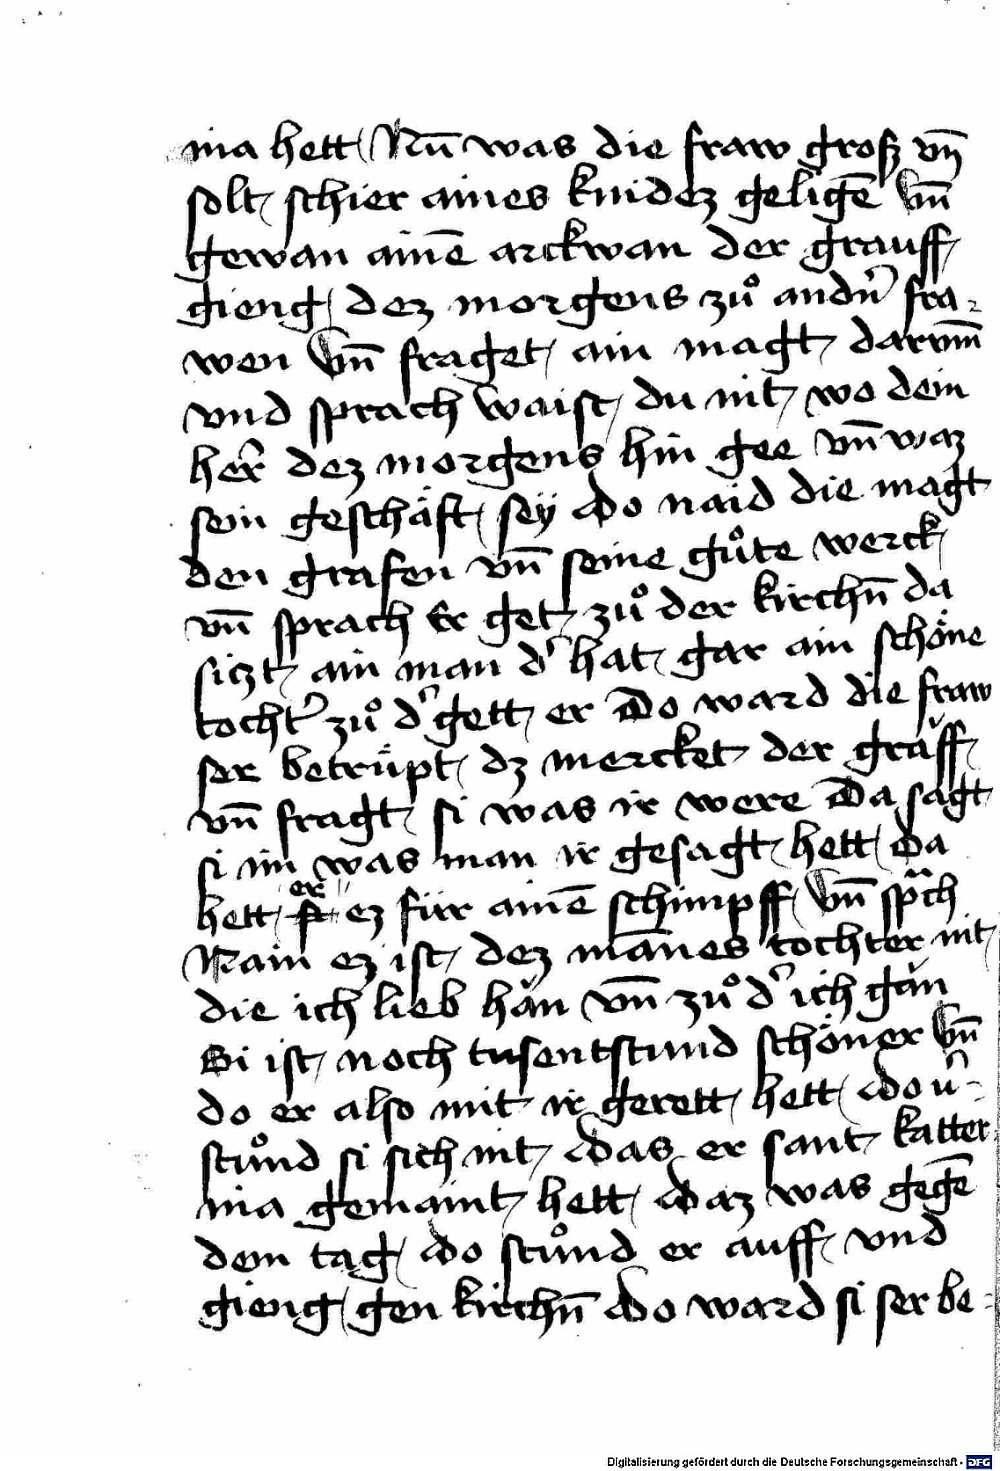 nia hett Nun̄ was die fraw groſz vn̄
ſolt ſchier aines kindez geligē Vn̄
gewan ainē arckwan der grauff
gieng dez morgens zuͦ andn̄ fra-
wen Vn̄ fraget ain magt darvm̄
vnd ſprach waiſt du nit wo dein
her̄ dez morgens hin gee vn̄ waz
ſein geſchäft ſey Do naid die magt
den grafen vn̄ ſeine guͦte werck
vn̄ ſprach Er get zuͦ der kirchn̄ da
ſiczt ain man d' hat gar ain ſchöne
tocht' zuͦ d' gett er Do ward die fraw
ſer betrüpt dz mercket der grǎff
vn̄ fragt ſi was ir were Da ſagt
ſi im was man ir geſagt hett Da
hett er ez für ainē ſchimpff Vn̄ ſpͣch
Nain ez iſt dez mānes tochter nit
die ich lieb hǎn vn̄ zuͦ d' ich gǎn
Si iſt noch tuſentſtund ſchöner Vn̄
do er alſo mit ir gerett hett Do v'-
ſtuͦnd ſi ſich nit das er ſant katter
nia gemaint hett Daz was gegē
dem tag Do ſtuͦnd er auff vnd
gieng gen kirchn̄ Do ward ſi ſer be-
Digitalisierung gefördert durch die Deutsche Forschungsgemeinschaft - DFG